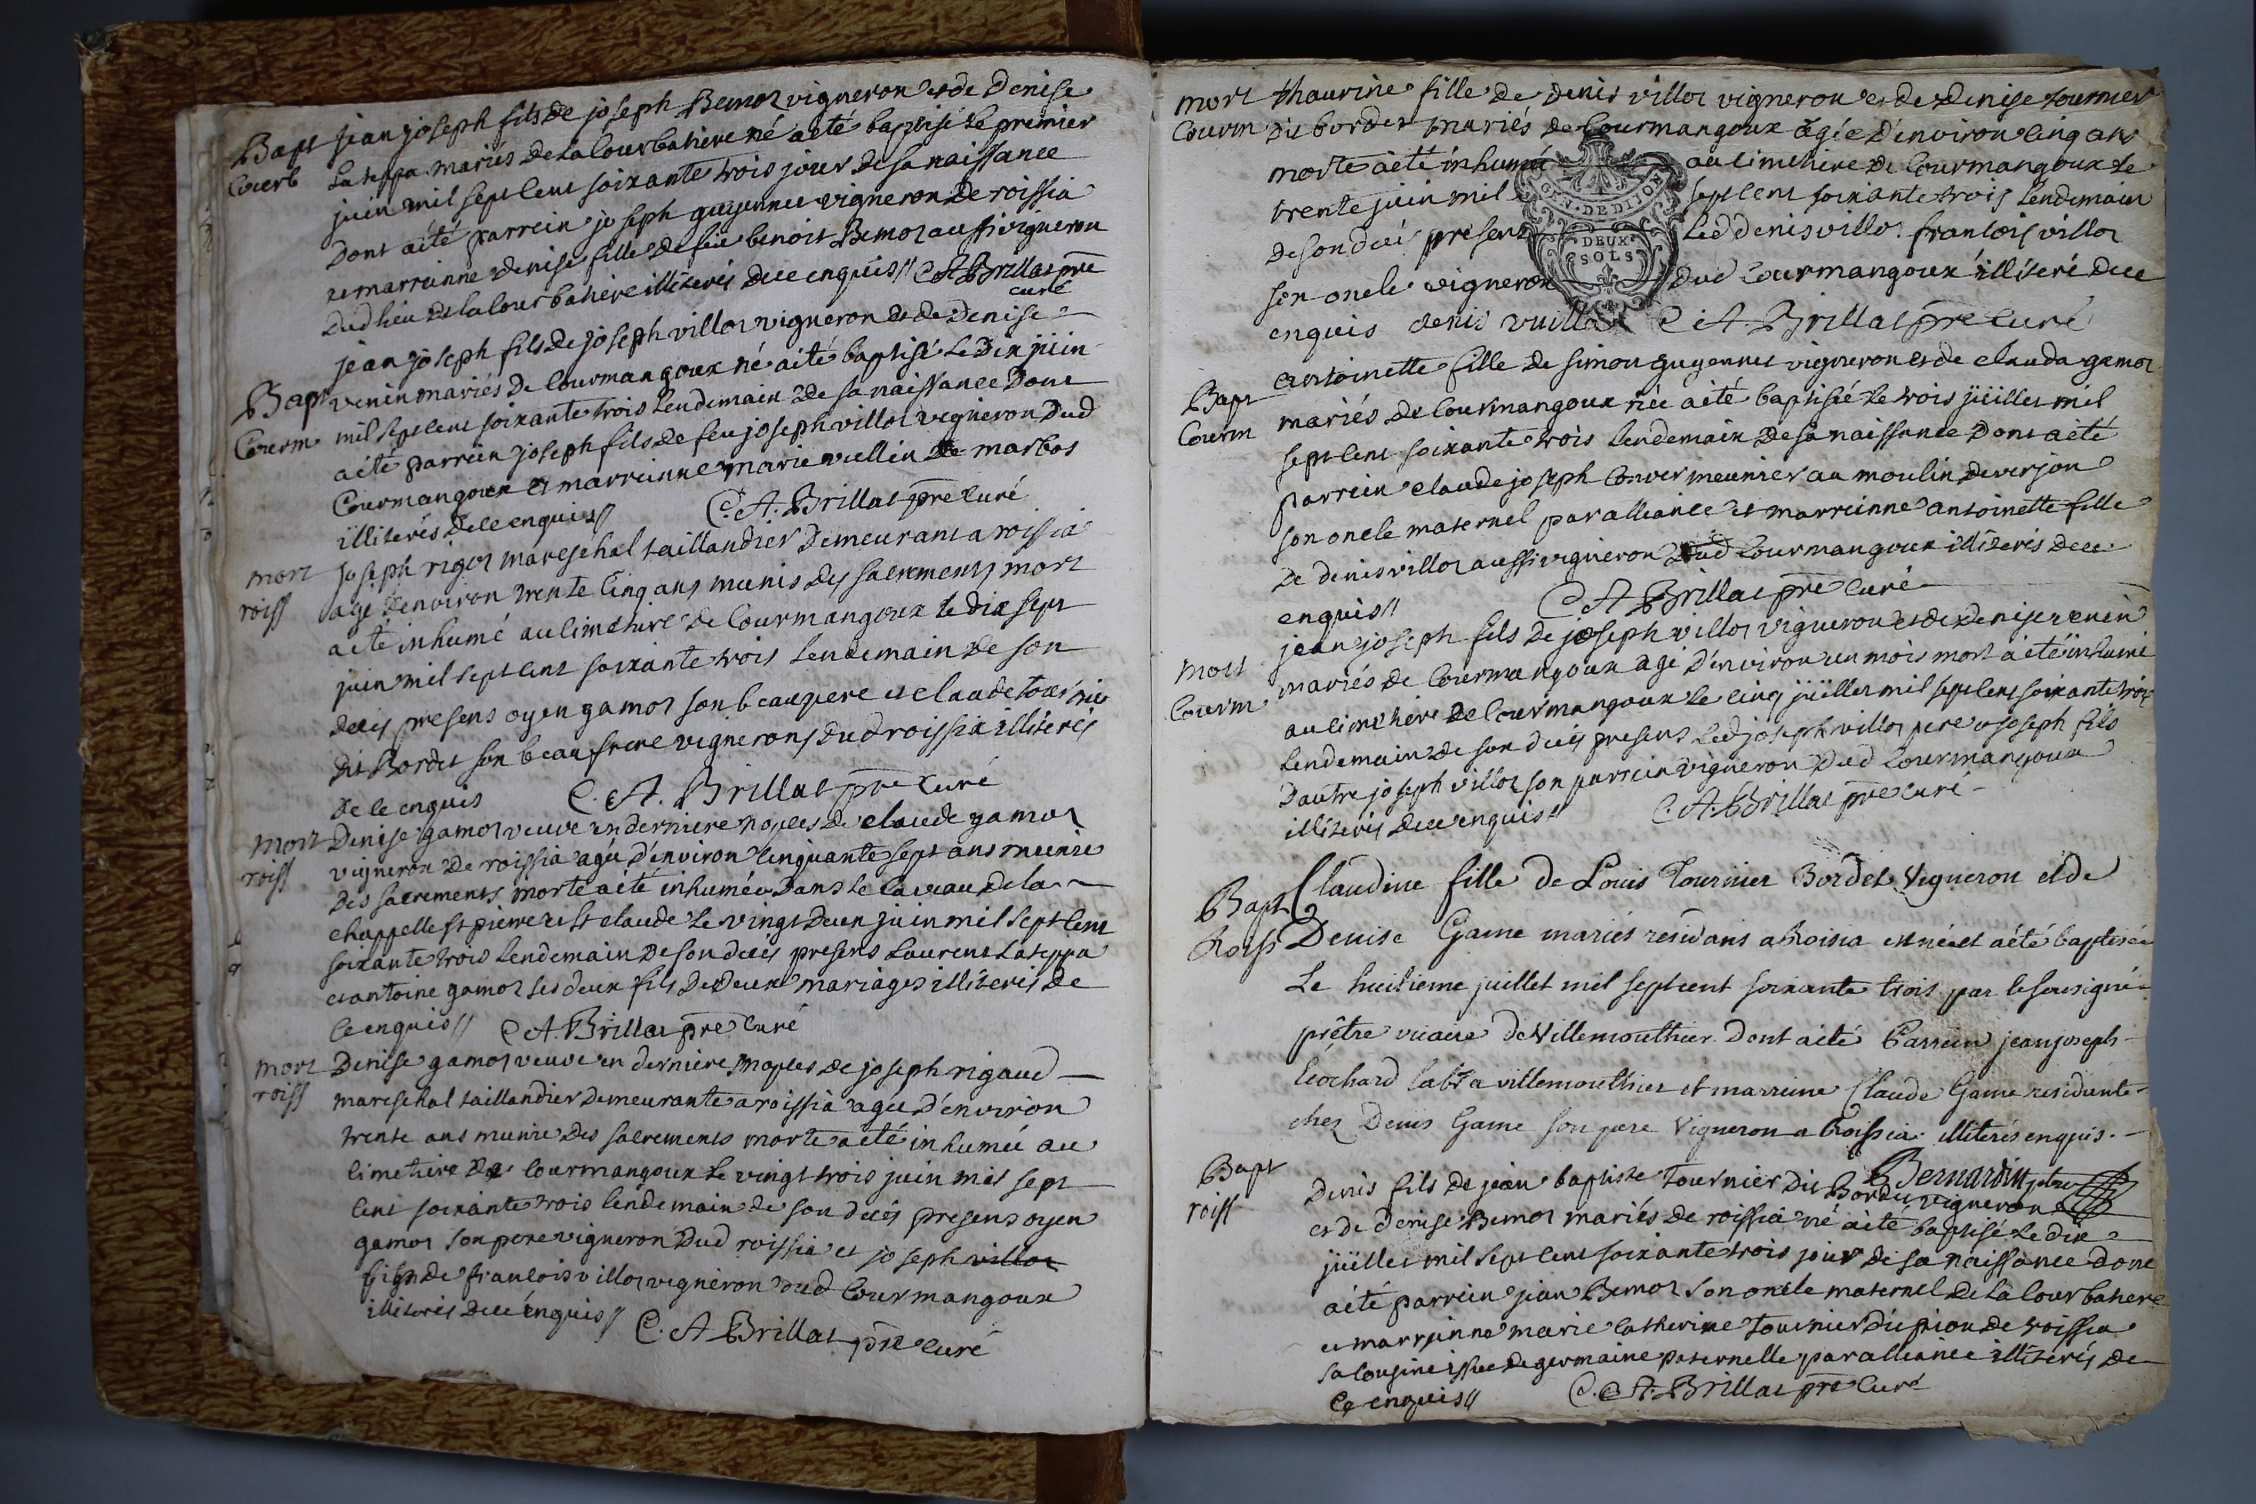 Bapt jean joseph fils de joseph Bemoz vigneron et de Denise
Courb Lateppa mariés de la Courbatiere né a eté baptisé le premier
juin mil sept cent soixante trois jour de sa naissance
Dont a été parrein joseph guyennet vigneron de roissia
et marreinne denise fille de feu benoit Bemoz aussi vigneron
dud lieu de la Courbatiere illiterés de ce enquis // C. A. Brillat pre
curé
jean joseph fils de joseph villot vigneron et de Denise
Bapt venin mariés de Courmangoux né a été baptisé le dix juin
Courm mil sept cent soixante trois lendemain de sa naissance Dont
a été parrein joseph fils de feu joseph villot vigneron dud
Courmangoux et marreinne marie vuellin de marbos
illiterés de ce enquis // C. A. Brillat pre Curé
mort joseph rigot mareschal taillandier Demeurant a roissia
roiss agé denviron trente Cinq ans munis des sacrements mort
a eté inhumé au Cimetiere de Courmangoux le dix sept
juin mil sept cent soixante trois lendemain de son
decés presens oyen gamoz son beaupere et claude
dit Bordet son beau frere vignerons dud roissia illiterés
de ce enquis C. A. Brillat pre Curé
mort Denise gamoz veuve en derniere nopces de claude gamoz
roiss vigneron de roissia agée d'environ Cinquante sept ans munie
des sacrements morte a été inhumée Dans le Caveau de la
chappelle st pierre et st claude le vingt deux juin mil sept Cent
soixante trois lendemain de son decés presens Laurent Lateppa
et antoine gamoz ses deux fils de deux mariages illiterés de
Ce enquis // C. A. Brillat pre Curé
mort Denise gamoz veuve en derniere nopces de joseph rigaud
roiss mareschal taillandier demeurante a roissia agée d'environ
trente ans munie des sacrements morte a eté inhumée au
Cimetiere de Courmangoux le vingt trois juin mil sept
Cent soixante trois lendemain de son decés presens oyen
gamoz son pere vigneron dud roissia et joseph villot
fils de francois villot vigneron dud Courmangoux
illiterés de ce enquis // C. A. Brillat pre Curé
mort thaurine fille de denis villot vigneron et de denise tournier
Courm dit bordet mariés de Courmangoux agée d'environ Cinq ans
morte a eté inhumée au Cimetiere de Courmangoux le
trente juin mil sept Cent soixante trois lendemain
de son decés presens Led denis villot francois villot
son oncle vigneron dud Courmangoux illiteré de ce
enquis denis vuillot C. A. Brillat pre Curé
GEN. DE DIJON
DEUX
SOLS
antoinette fille de simon guyennet vigneron et de clauda gamoz
Bapt mariés de Courmangoux née a eté baptisée le trois juillet mil
Courm sept Cent soixante trois lendemain de sa naissance Dont a eté
parrein claude joseph Convert meunier au moulin de verjon
son oncle maternel par alliance et marreinne antoinette fille
de denis villot aussi vigneron dud Courmangoux illiterés de ce
enquis // C. A. Brillat pre Curé
jean joseph fils de joseph villot vigneron et de denise venin
mort mariés de Courmangoux agé d'environ un mois mort a eté inhumé
Courm au Cimetiere de Courmangoux le Cinq juillet mil sept Cent soixante trois
lendemain de son decés presens Led joseph villot pere et joseph fils
dautre joseph villot son parrein vigneron dud Courmangoux
illiterés de ce enquis // C. A. Brillat pre Curé
Bapt Claudine fille de Louis Tournier Bordet Vigneron et de
Roiss Denise Game mariés residans a Roisia est née et a été baptisée
Le huitieme juillet mil sept cent soixante trois par le sousigné
prêtre vicaire de Villemouthier dont a été Parrein jean joseph
a villemouthier et marreine Claude Game residante
chez Denis Game son pere Vigneron a Roissia illiterés enquis.
Bernardin ptre
Bapt Denis fils de jean baptiste Tournier dit Bordet vigneron
roiss et de denise Bemoz mariés de roissia né a été baptisé le dix
juillet mil sept Cent soixante trois jour de sa naissance Dont
a été parrein jean Bemoz son oncle maternel de la Courbatiere
et marreinne marie Catherine Tournier de roissia
sa Cousine issue de germaine paternelle par alliance illiterés de
Ce enquis // C. A. Brillat pre Curé